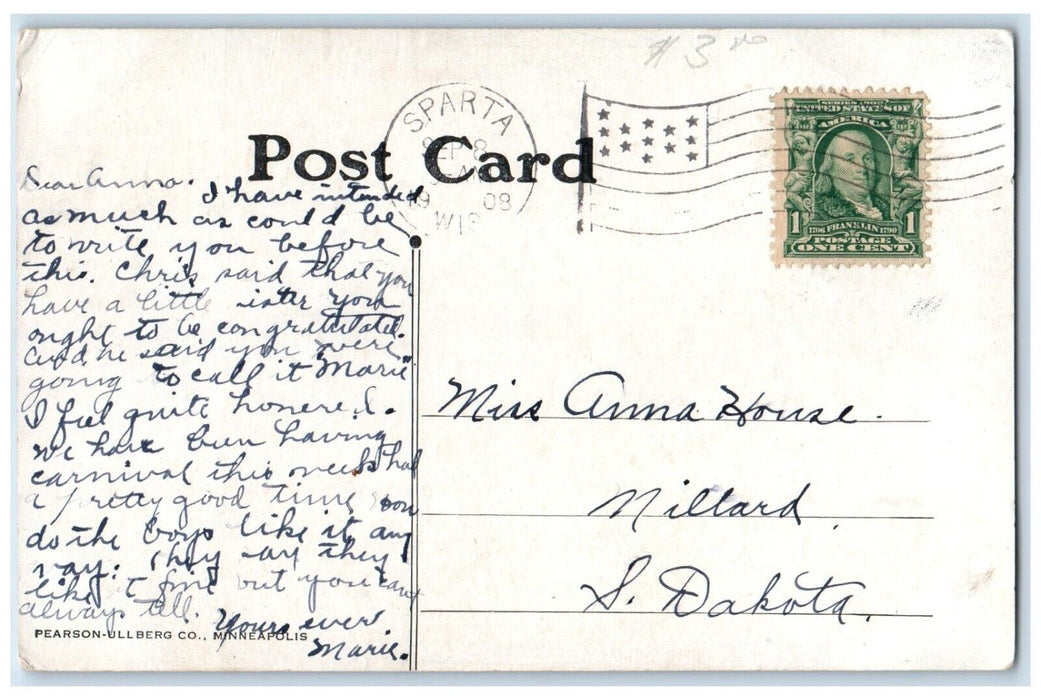 $3 00
SPARTA
SEP 8
08
WIS
SERIES 1902
UNITED STATES OF
AMERICA
1 1
1706 FRANKLIN 1790
POSTAGE
ONE CENT
Post Card
Dear Anna. I have intended
as much as could be
to write you before
this. Chris said that you
have a little sister you
ought to be congratulated.
and he said you were
going to call it Marie
I feel quite honered.
we have been having
carnival this week had
a pretty good time
do the boys like it any
way: They say they
like it fine but you cant
always tell.
Yours ever
Marie.
PEARSON-ULLBERG CO., MINNEAPOLIS
Miss Anna House.
Millard,
S. Dakota.